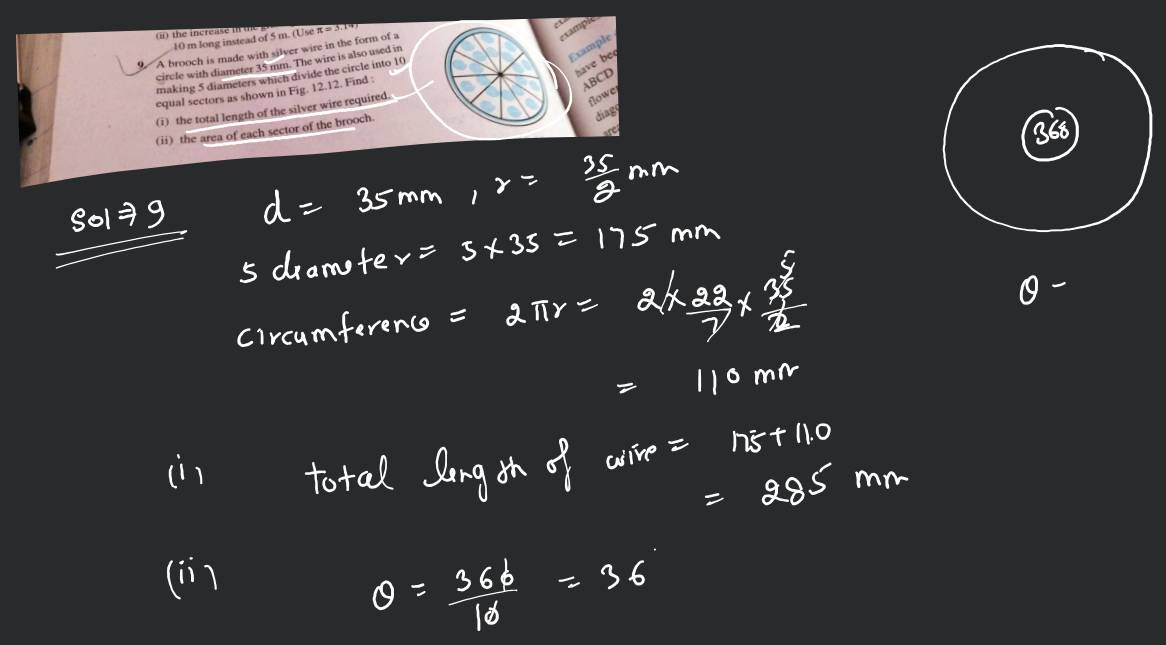 (ii) the increase in the
10 m long instead of 5 m. (Use π = 3.14)
9. A brooch is made with silver wire in the form of a
circle with diameter 35 mm. The wire is also used in
making 5 diameters which divide the circle into 10
equal sectors as shown in Fig. 12.12. Find :
(i) the total length of the silver wire required.
(ii) the area of each sector of the brooch.
example
Example
have bee
ABCD
flower
diago
are
360
Sol⇒9
d = 35 mm , r = 35/2 mm
5 diameter = 5 × 35 = 175 mm
circumference = 2πr = 2 × 22/7 × 35/2
5
θ -
= 110 mm
(i) total length of wire = 175 + 110
= 285 mm
(ii) θ = 360/10 = 36°